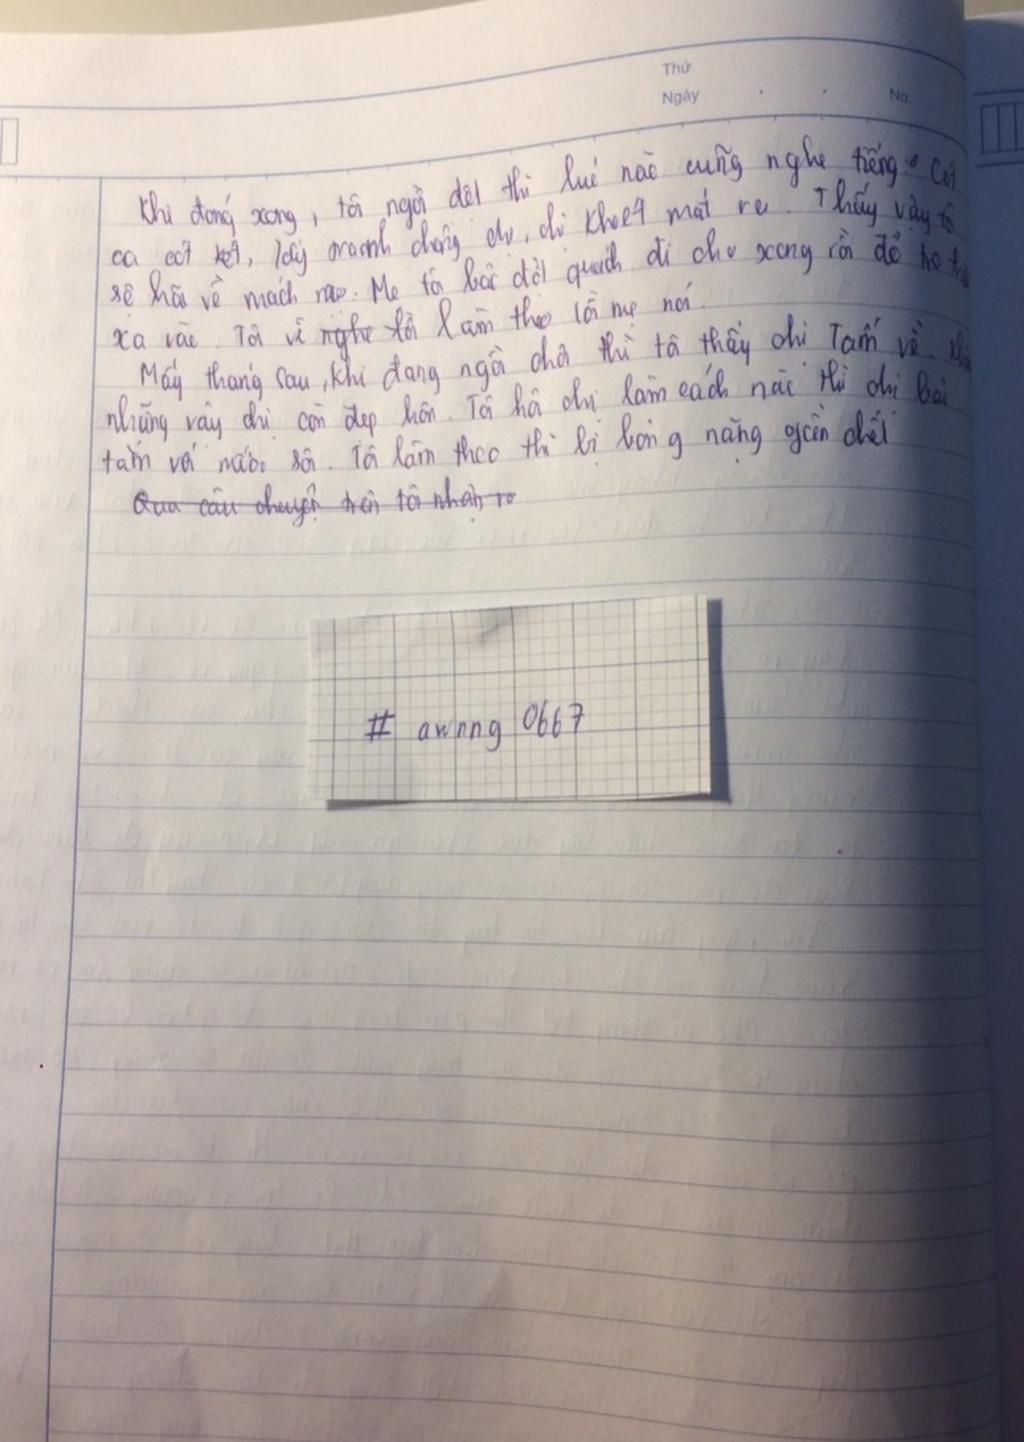 Thứ
Ngày
No.
Khi đóng xong, tôi ngồi dệt thì lúc nào cũng nghe tiếng: Cót
ca cót két, lấy tranh chồng chị, chị khoét mắt ra. Thấy vậy tô
sợ hãi về mách mẹ. Mẹ tôi bảo đốt quách đi cho xong rồi đổ tro
xa vào. Tôi vì nghe tôi làm theo lời mẹ nói.
Mấy tháng sau, khi đang ngồi chơi thì tô thấy chị Tấm về.
những vậy chị còn đẹp hơn. Tôi hỏi chị làm cách nào thì chị bảo
tắm với nước sôi. Tôi làm theo thì bị bỏng nặng gần chết
Qua câu chuyện trên tôi nhận ra
# awnng 0667